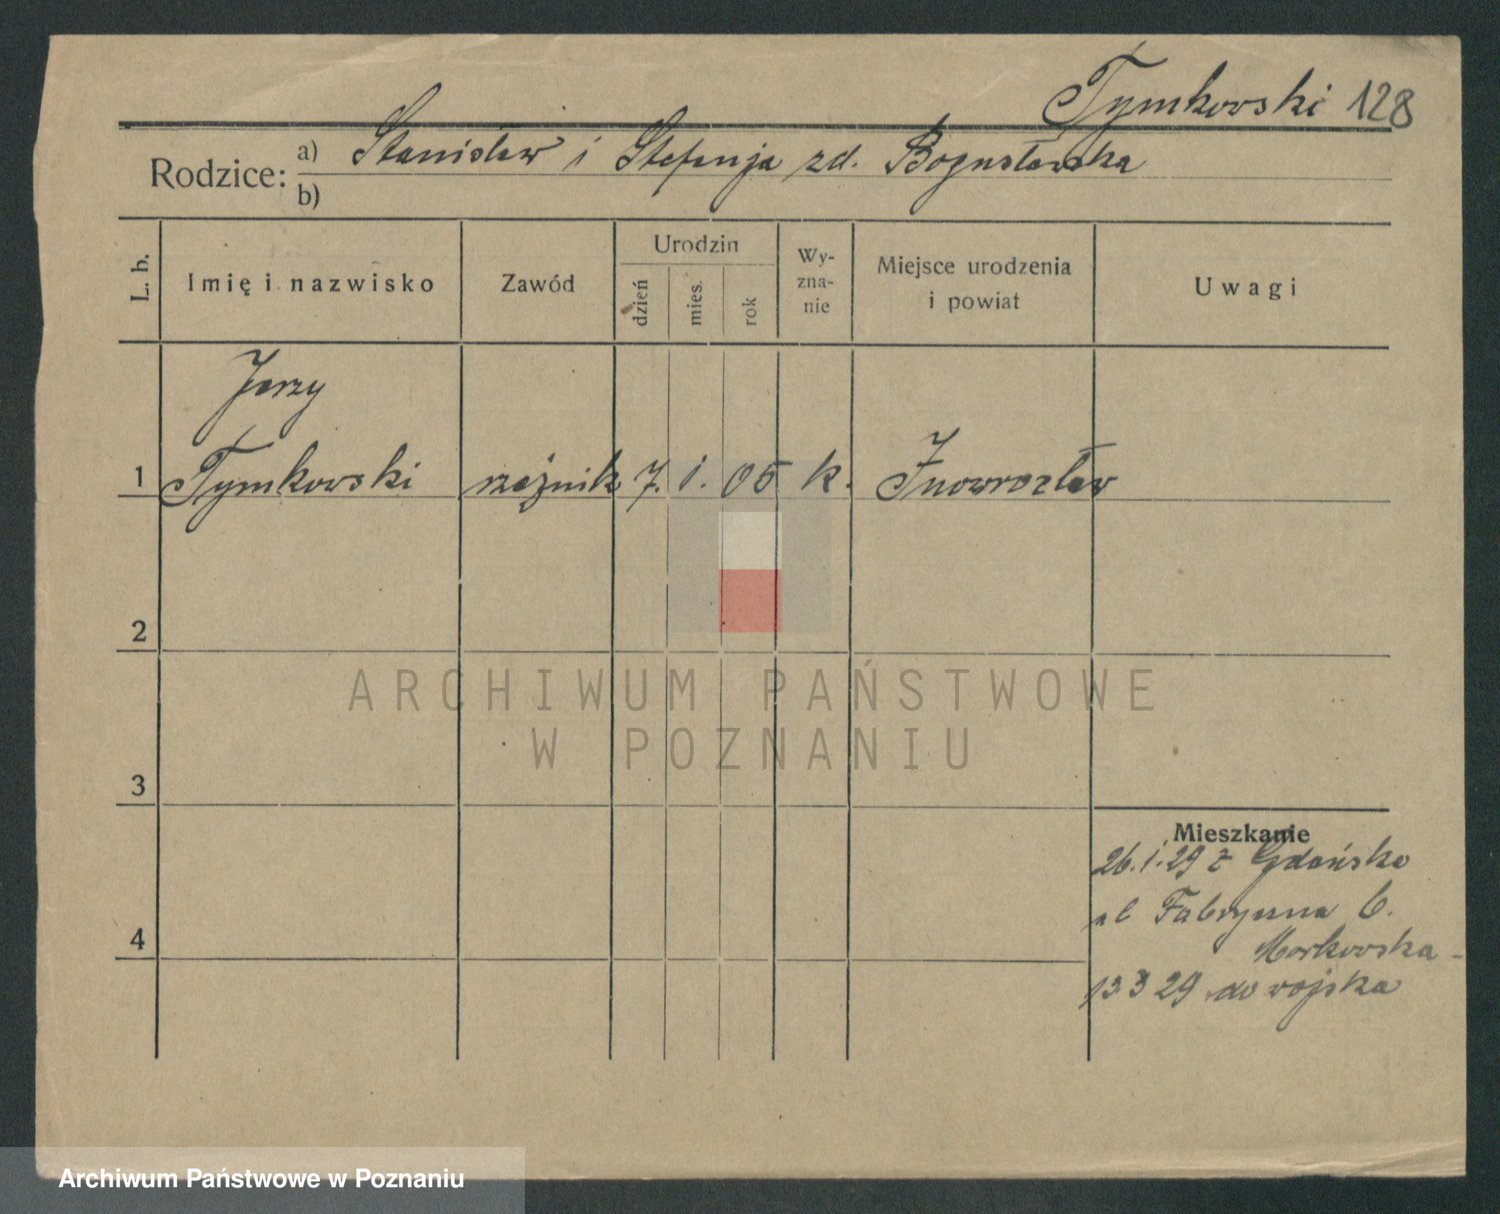 Tymkowski 128
Rodzice: a) Stanisław i Stefanja zd. Bogusławska
b)
L. b. Imię i nazwisko Zawód Urodzin dzień mies. rok Wy-zna-nie Miejsce urodzenia i powiat Uwagi
Jerzy
1 Tymkowski rzeźnik 7. i. 05 k. Inowrocław
2
ARCHIWUM PAŃSTWOWE
W POZNANIU
3
Mieszkanie
26.i.29 z Gdańska
ul Fabryczna 6.
4
Morkowska -
13.3 29 do wojska
Archiwum Państwowe w Poznaniu